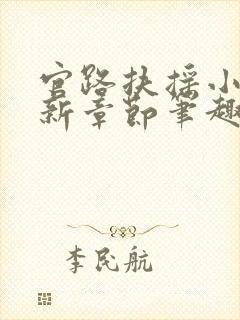 官路扶摇小
新章节笔趣
李民航